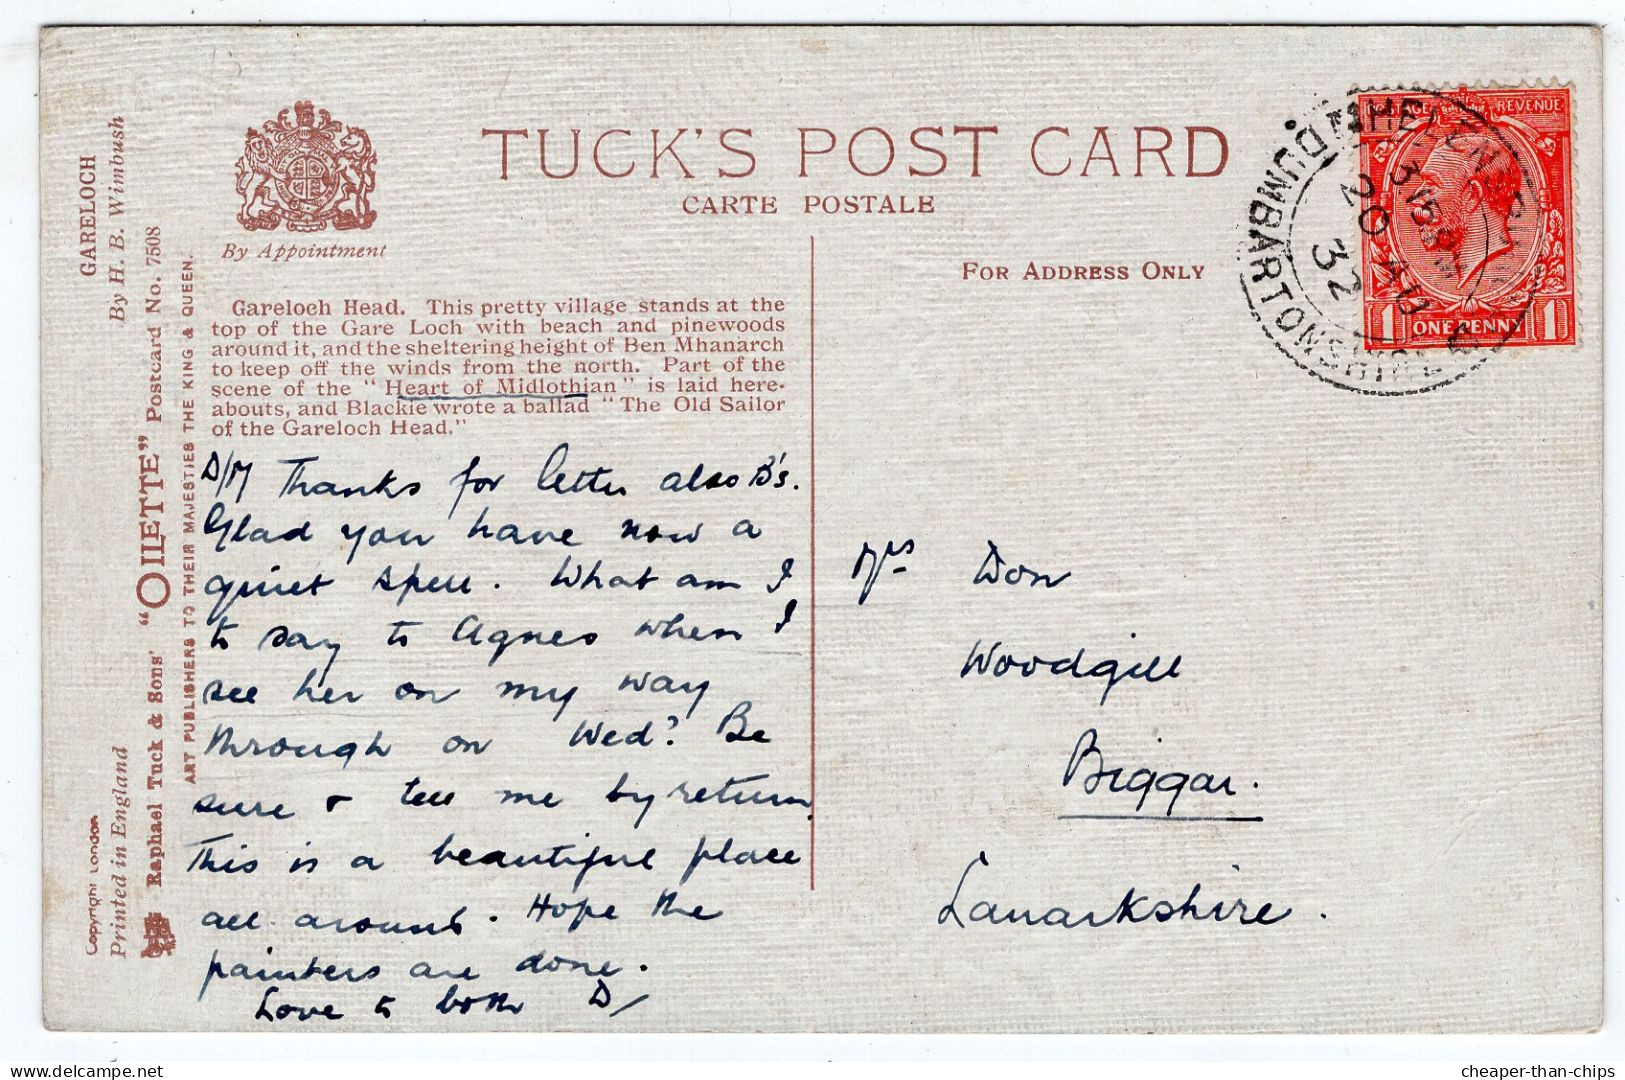 TUCK'S POST CARD
CARTE POSTALE
By Appointment
FOR ADDRESS ONLY
GARELOCH
By H. B. Wimbush
Raphael Tuck & Sons' "OILETTE" Postcard No. 7508
ART PUBLISHERS TO THEIR MAJESTIES THE KING & QUEEN.
Copyright London
Printed in England
Gareloch Head. This pretty village stands at the
top of the Gare Loch with beach and pinewoods
around it, and the sheltering height of Ben Mhanarch
to keep off the winds from the north. Part of the
scene of the "Heart of Midlothian" is laid here-
abouts, and Blackie wrote a ballad "The Old Sailor
of the Gareloch Head."
D/M Thanks for letter also B's.
Glad you have now a
quiet spell. What am I
to say to Agnes when I
see her on my way
through on Wed? Be
sure & tell me by return.
This is a beautiful place
all around. Hope the
painters are done.
Love to both D/
Mrs Don
Woodgill
Biggar.
Lanarkshire.
HELENSBURGH
DUMBARTONSHIRE
20 AU
32
REVENUE
1 ONE PENNY 1D
cheaper-than-chips